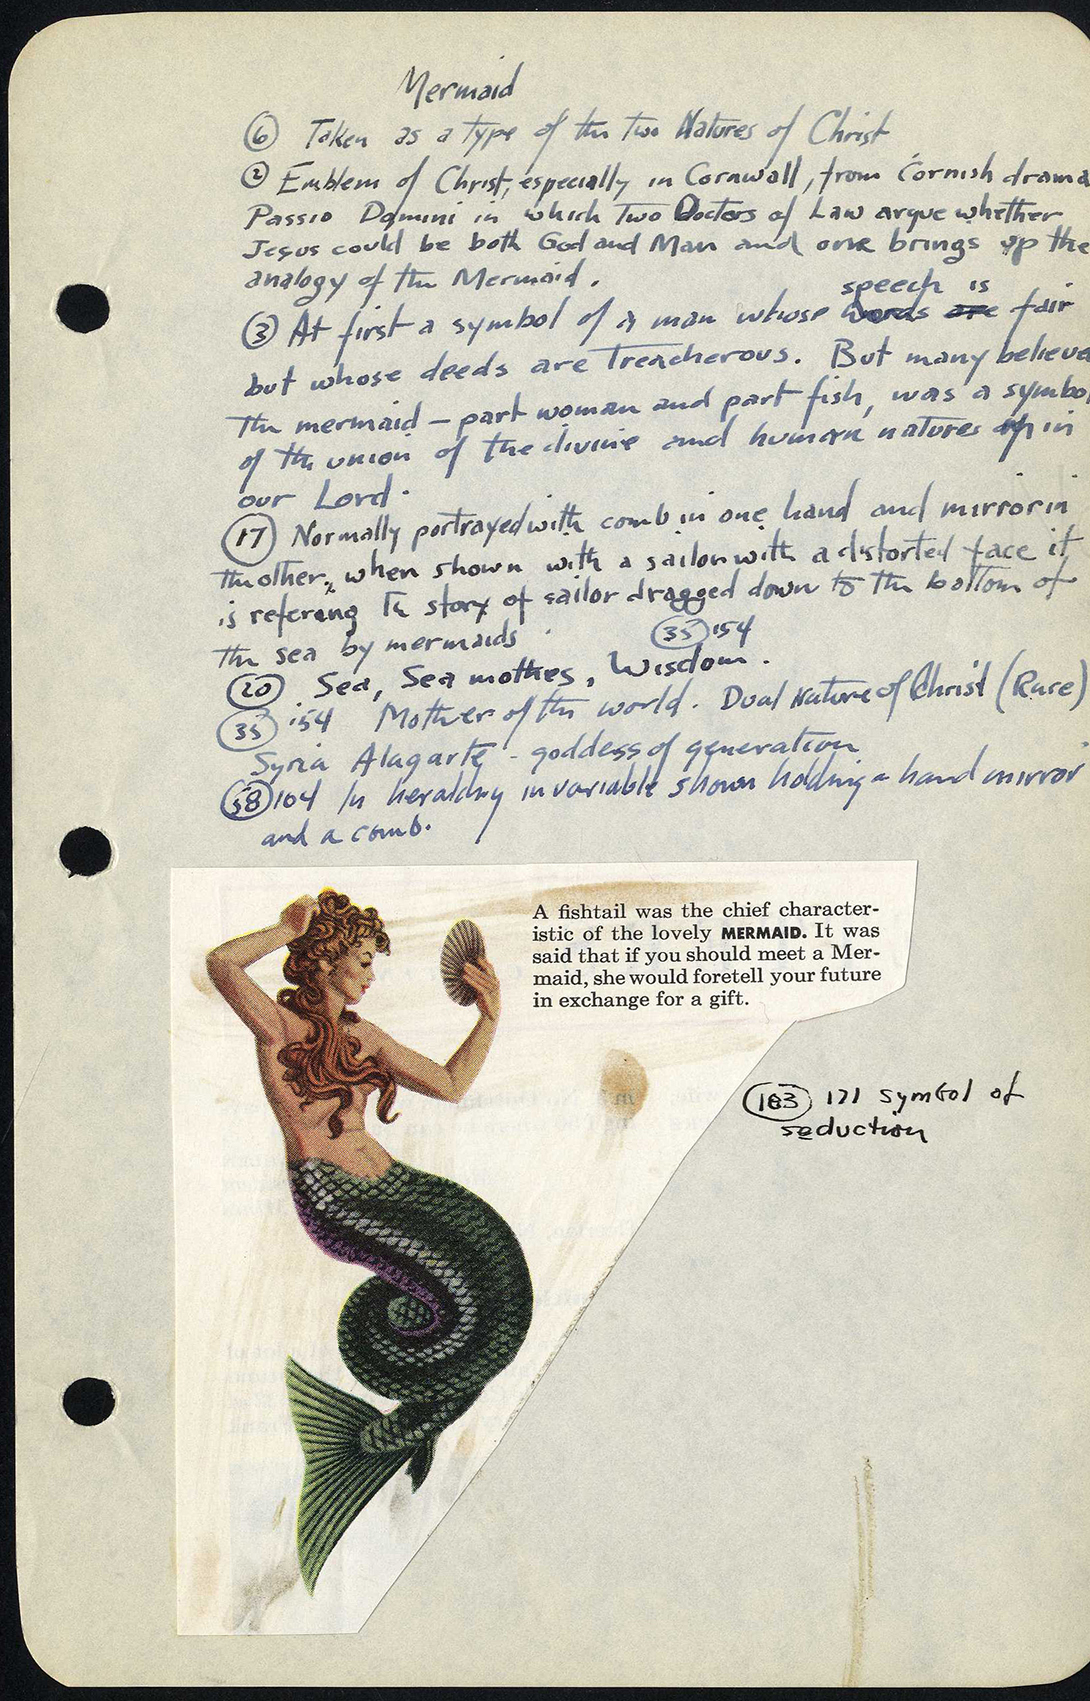 Mermaid
⑥ Taken as a type of the two Natures of Christ
② Emblem of Christ, especially in Cornwall, from Cornish drama
Passio Domini in which Two Doctors of Law argue whether
Jesus could be both God and Man and one brings up the
analogy of the Mermaid.
speech is
③ At first a symbol of a man whose words are fair
but whose deeds are Treacherous. But many believe
the mermaid – part woman and part fish, was a symbol
of the union of the divine and human natures in
our Lord.
⑰ Normally portrayed with comb in one hand and mirror in
the other, when shown with a sailor with a distorted face it
is refering to story of sailor dragged down to the bottom of
the sea by mermaids
㉟ 154
⑳ Sea, Sea mothers, Wisdom.
㉟ 154 Mother of the world. Dual Nature of Christ (Rare)
Syria Alagarte - goddess of generation
58 104 In heraldry invariable shown holding a hand mirror
and a comb.
A fishtail was the chief character-
istic of the lovely MERMAID. It was
said that if you should meet a Mer-
maid, she would foretell your future
in exchange for a gift.
163 171 symbol of
seduction